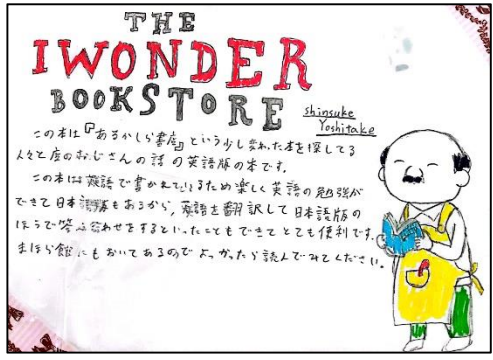 THE
IWONDER
BOOKSTORE
Shinsuke
Yoshitake
この本は『あるかしら書店』という少し変わった本を探してる
人々と店のおじさんの話の英語版の本です。
この本は英語で書かれているため楽しく英語の勉強が
できて日本語版もあるから、英語を翻訳して日本語版の
ほうで答え合わせをするといったこともできてとても便利です。
まほら館にもおいてあるのでよかったら読んでみてください。